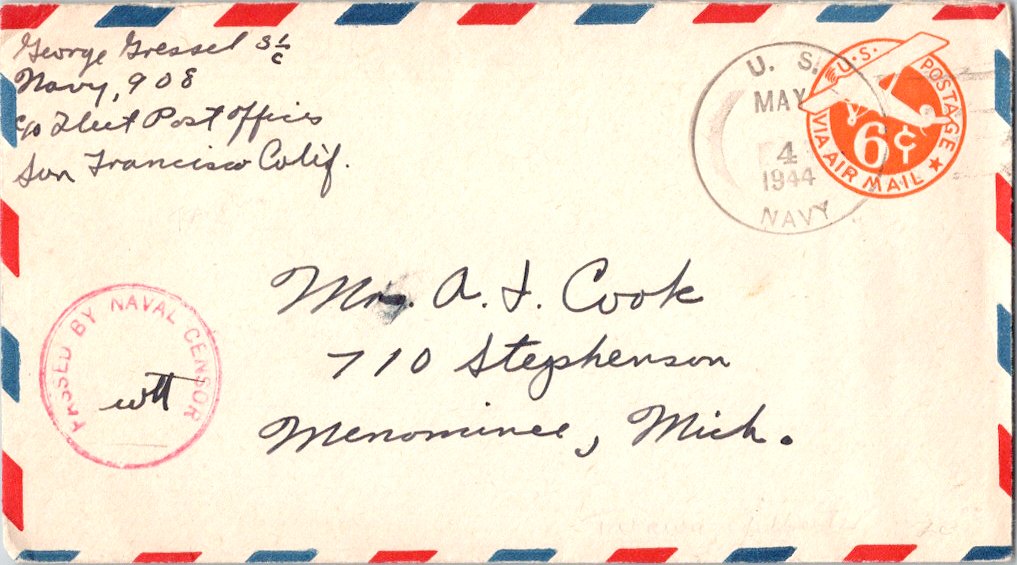 George Gressel S 1/c
Navy, 908
c/o Fleet Post Office
San Francisco Calif.
U. S.
MAY
4
1944
NAVY
U.S. POSTAGE
6¢
VIA AIR MAIL
Mrs. A. J. Cook
710 Stephenson
Menominee, Mich.
PASSED BY NAVAL CENSOR